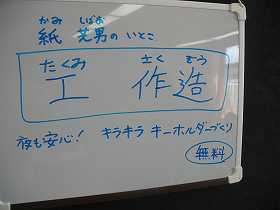 かみ しばお
紙 芝男のいとこ
たくみ さくぞう
工 作造
夜も安心! キラキラ キーホルダーづくり
無料